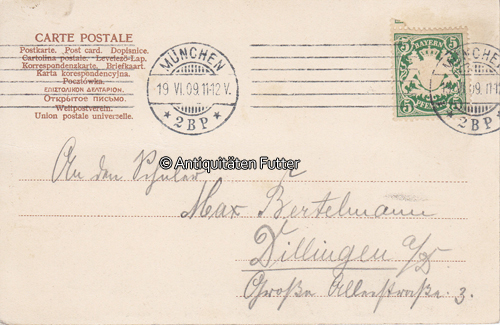 CARTE POSTALE
Postkarte. Post card. Dopisnice.
Cartolina postale. Levelező-Lap.
Korrespondenzkarte. Briefkaart.
Karta korespondencyjna.
Pocztówka.
ΕΠΙΣΤΟΛΙΚΟΝ ΔΕΛΤΑΡΙΟΝ.
Открытое письмо.
Weltpostverein.
Union postale universelle.
MÜNCHEN
19 VI. 09. 11-12 V.
* 2 B P *
5 BAYERN 5
5 PFENNIG 5
VI. 09. 11-12
* 2 B P *
© Antiquitäten Futter
An den Schüler
Max Bertelmann
Dillingen a/D
Große Allerstraße 3.